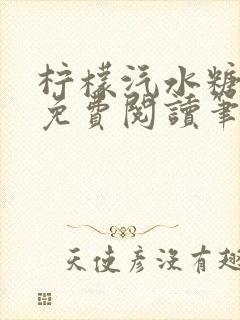 柠檬汽水糖
免費閱讀筆
天使彦沒有趣